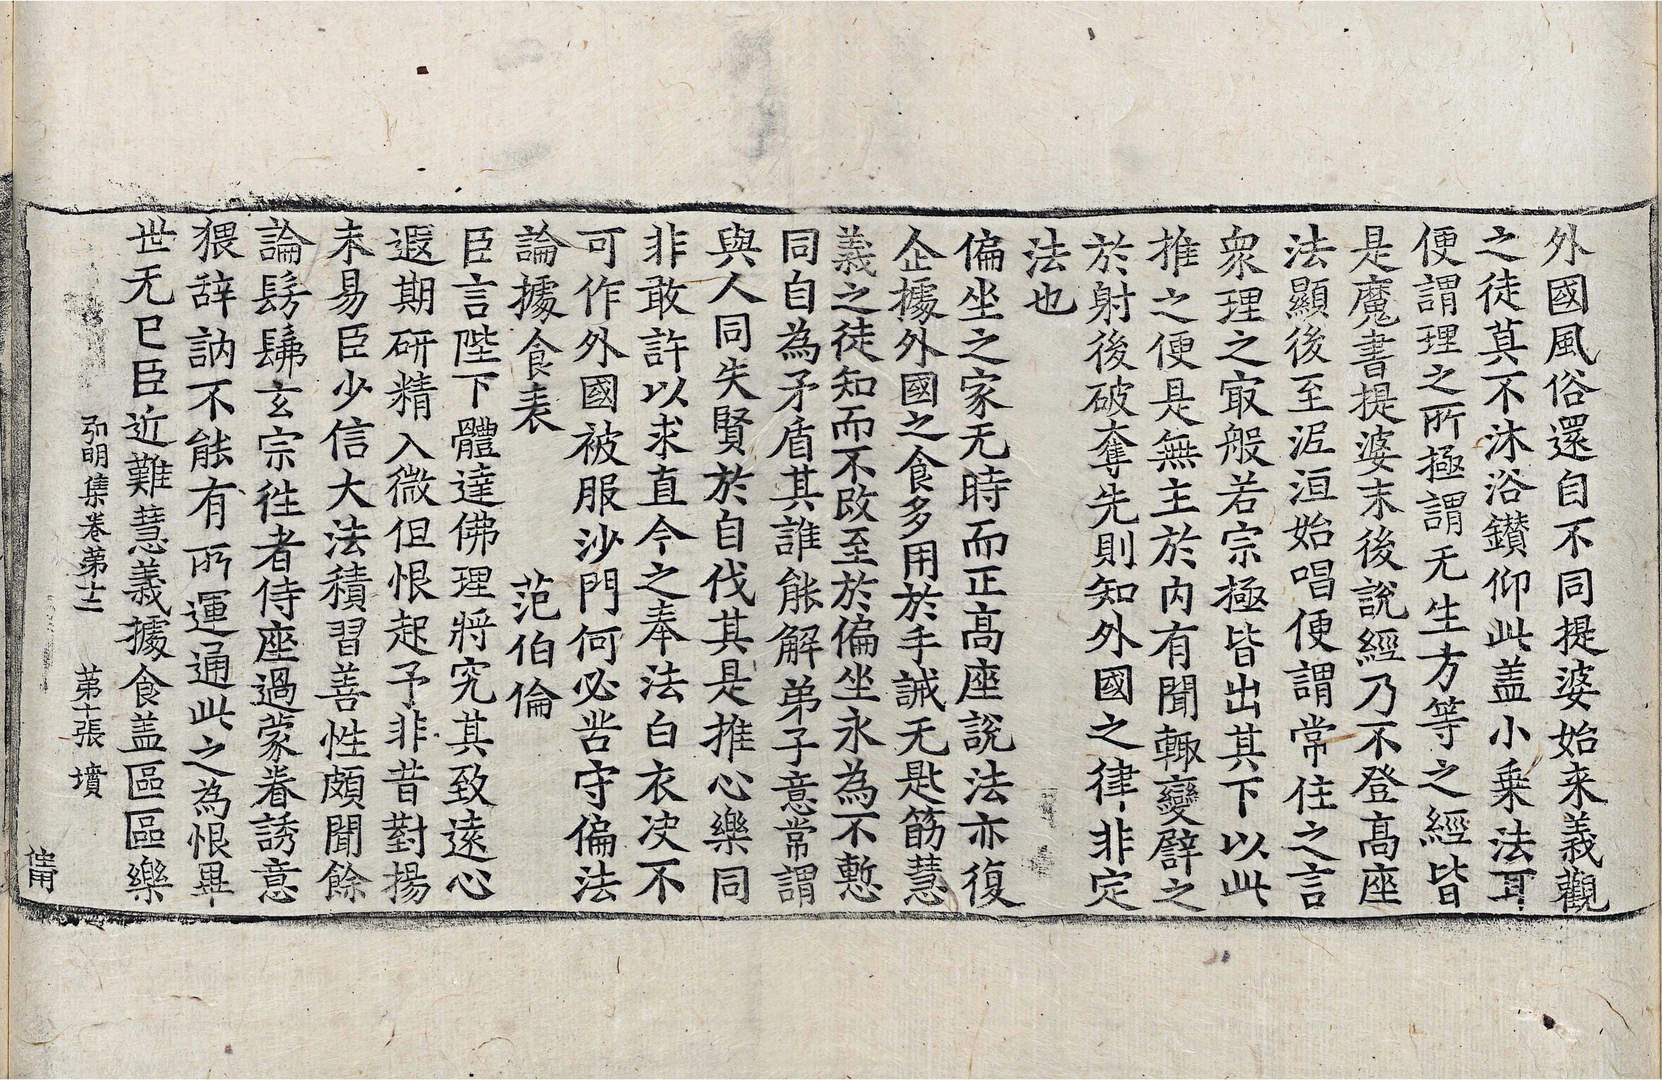 外國風俗還自不同提婆始来義觀
之徒莫不沐浴鑚仰此盖小乗法耳
便謂理之所極謂无生方等之經皆
是魔書提婆末後說經乃不登髙座
法顯後至泥洹始唱便謂常住之言
衆理之冣般若宗極皆出其下以此
推之便是無主於内有聞輙變譬之
於射後破奪先則知外國之律非定
法也
偏坐之家无時而正髙座說法亦復
企據外國之食多用於手誡无匙筯慧
義之徒知而不改至於偏坐永為不慙
同自為矛盾其誰能解弟子意常謂
與人同失賢於自伐其是推心樂同
非敢許以求直今之奉法白衣决不
可作外國被服沙門何必苦守偏法
論據食表　范伯倫
臣言陛下體達佛理將究其致遠心
遐期研精入微但恨起予非昔對揚
未易臣少信大法積習善性頗聞餘
論髣髴玄宗徃者侍座過蒙眷誘意
猥辞訥不能有所運通此之為恨畢
世无已臣近難慧義據食盖區區樂
弘明集卷第十二　第十張　墳